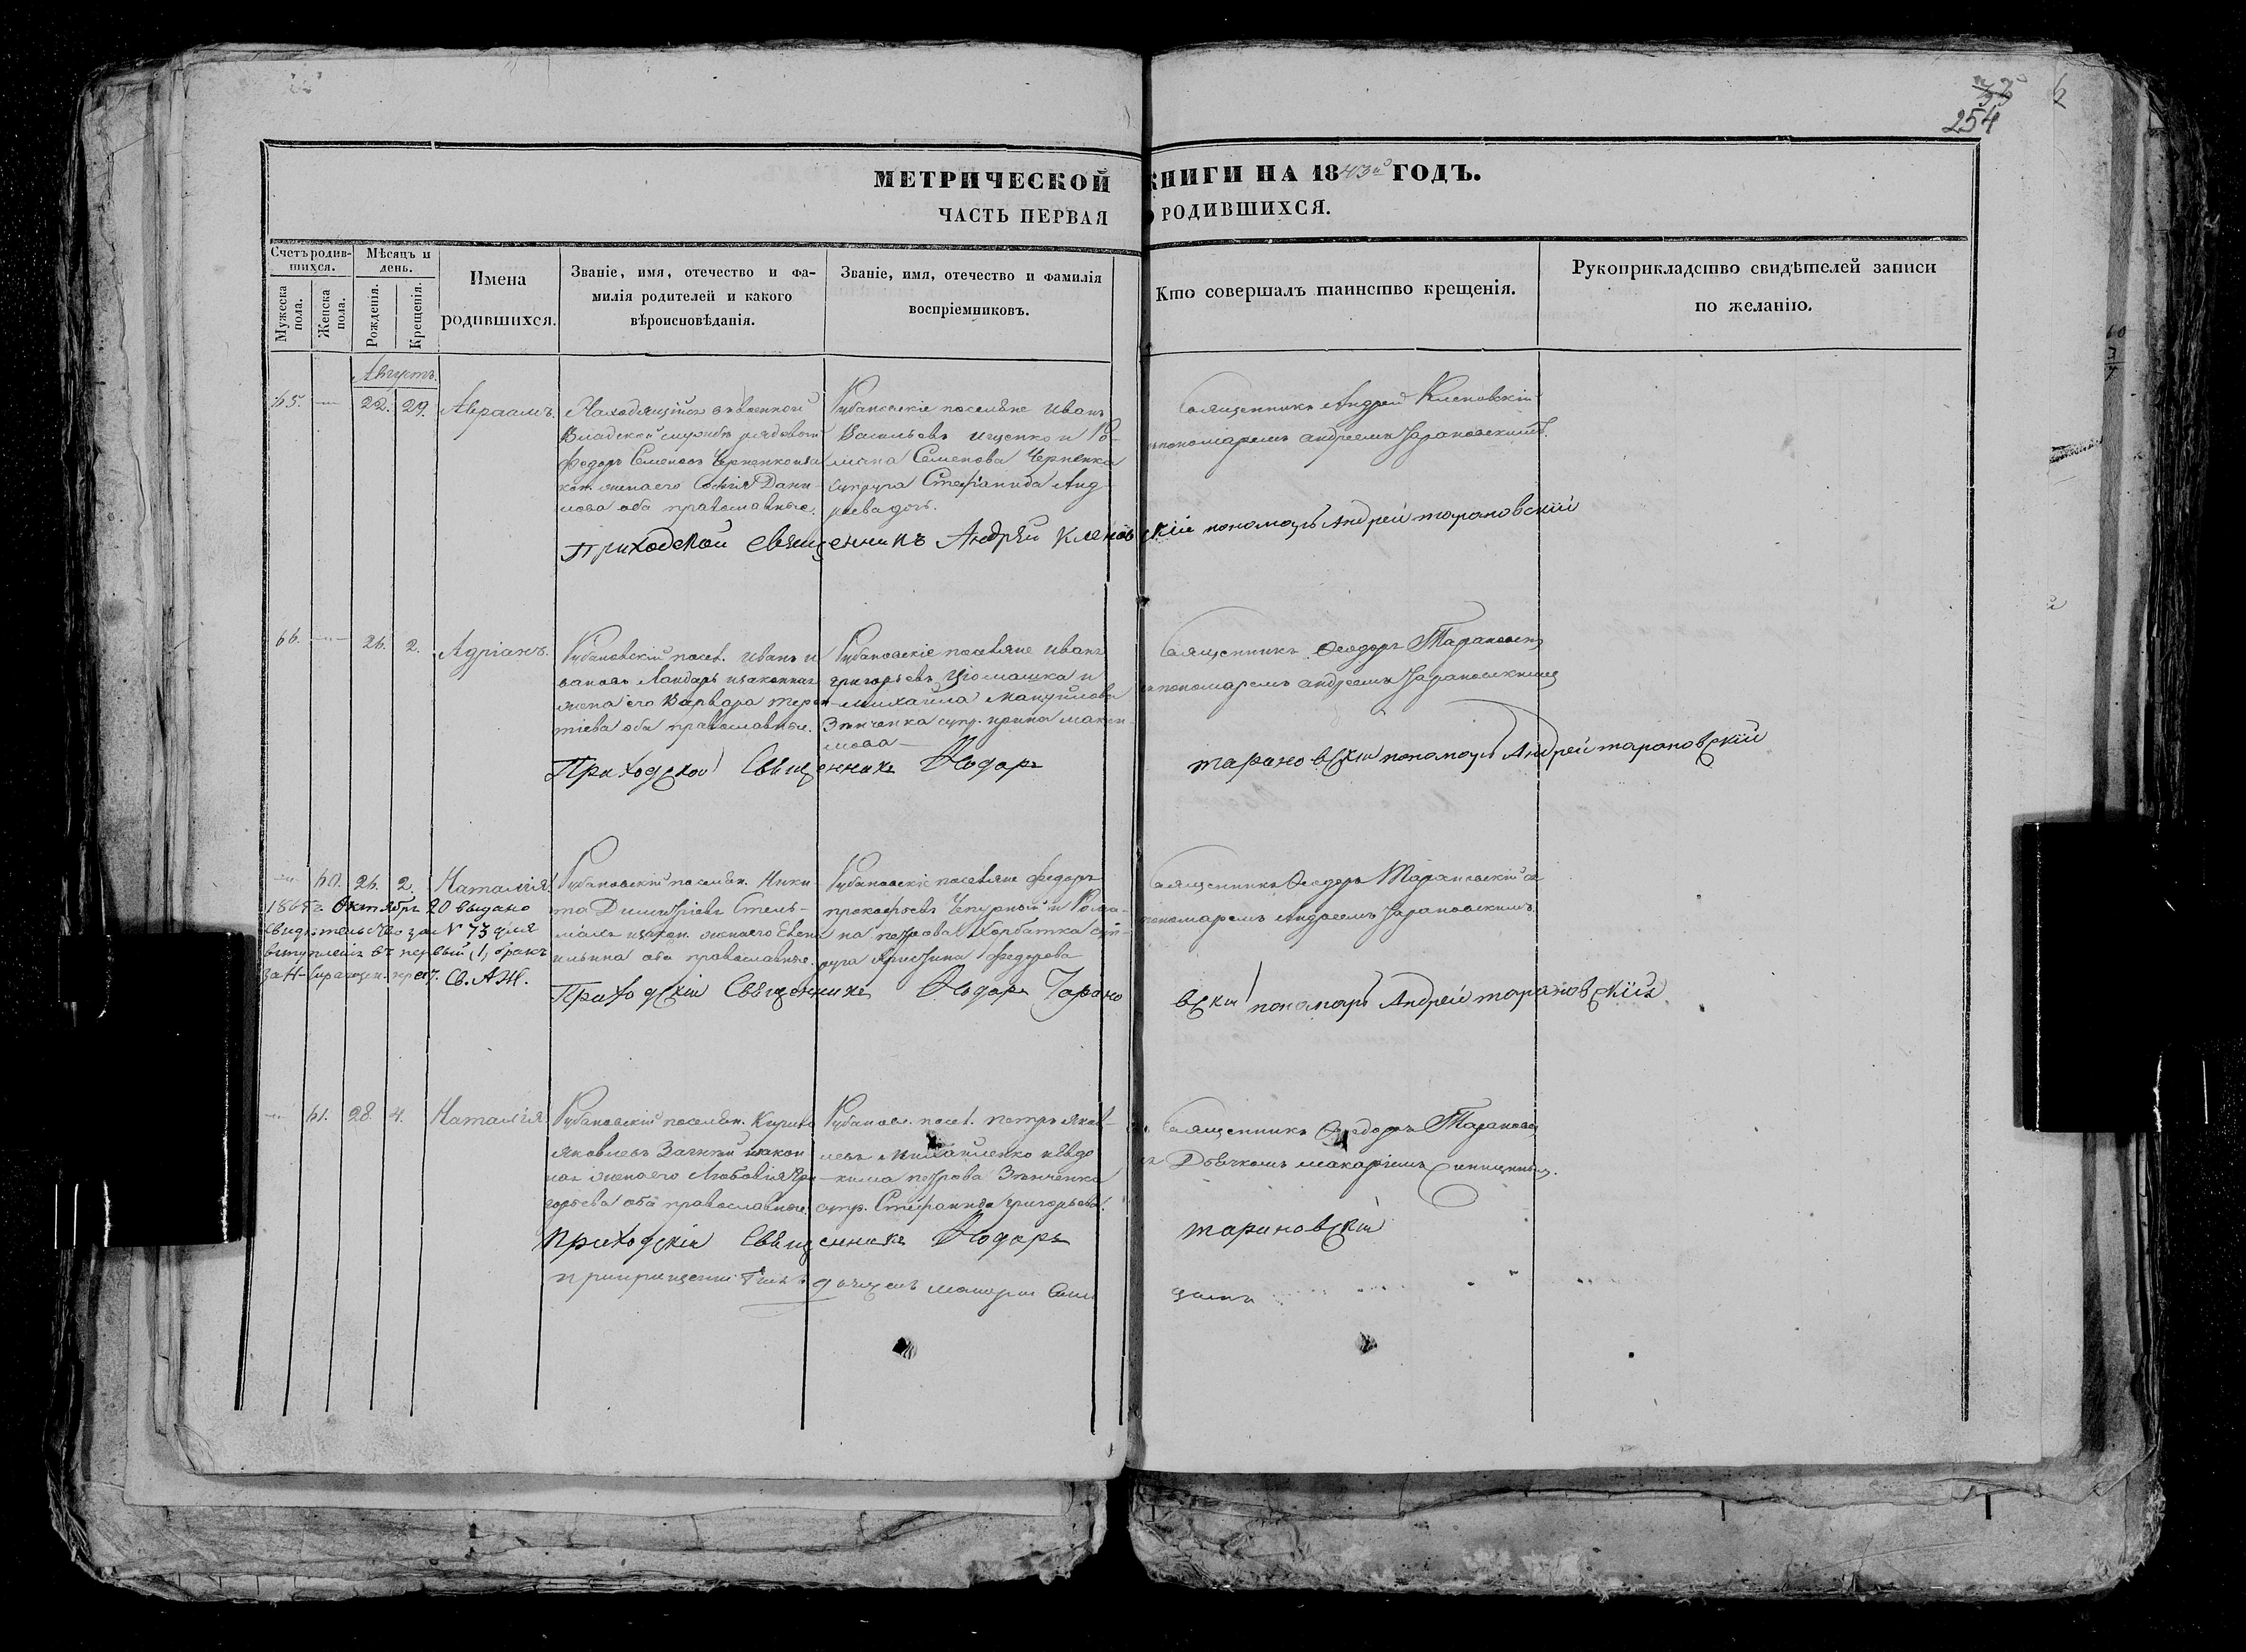 254
МЕТРИЧЕСКОЙ КНИГИ НА 1843й ГОДЪ.
ЧАСТЬ ПЕРВАЯ О РОДИВШИХСЯ.
Счетъ родившихся.
Мужеска пола.
Женска пола.
Мѣсяцъ и день.
Рожденія.
Крещенія.
Имена родившихся.
Званіе, имя, отечество и фамилія родителей и какого вѣроисповѣданія.
Званіе, имя, отечество и фамилія воспріемниковъ.
Кто совершалъ таинство крещенія.
Рукоприкладство свидѣтелей записи по желанію.
Августъ.
65. — 22. 29. Авраамъ.
Находящійся въ военной
службѣ рядовой
Федоръ Семеновъ Черненко и за
кон. жена его Софія Дани-
лова оба православные.
Рубановскіе поселяне Иванъ
Васильевъ Ищенко и Ро-
мана Семенова Черненка
супруга Стефанида Анд
реева дочь.
Священникъ Андрей Кленовскій
съ пономаремъ Андреемъ Тарановскимъ.
Приходской Священникъ Андрей Кленовскій пономарь Андрей тарановскій
66. — 26. 2. Адріанъ.
Рубановскій посел. Иванъ И
вановъ Ландарь и законная
жена его Варвара Терен
тіева оба православные.
Рубановскіе поселяне Иванъ
Григорьевъ и
Михаила Мануйлова
Зѣнченка супр. Ирина Макси
мова
Священникъ Ѳеодоръ Тарановск
съ пономаремъ Андреемъ Тарановскимъ
Приходской Священникъ Ѳеодоръ тарановскій пономарь Андрей тарановскій
— 60. 26. 2. Наталія.
Рубановскій поселян. Ники
та Димитріевъ Стель-
махъ и закон. жена его Евген
ильина оба православные.
Рубановскіе поселяне Федоръ
Прокофьевъ Чепурной и Рома-
на Петрова Горбатка суп-
руга Христина Федорова
Священникъ Ѳеодоръ Тарановскій съ
пономаремъ Андреемъ Тарановскимъ.
Октября 20 выдано
свидѣтельство за № 73 для
вступленія въ первый (1) бракъ
Св. А.Ж.
Приходскій Священникъ Ѳеодоръ Тарановскій пономарь Андрей тарановскій
— 61. 28. 4. Наталія
Рубановскій поселян. Кирило
Яковлевъ и закон
ная жена его Любовія Гри
горьева оба православные.
Рубанов. посел. Петръ Яков-
левъ Михайленко и Евдо
кима Петрова Зѣнченка
супр. Стефанида Григорьева.
Священникъ Ѳеодоръ Тарановс
съ Дьячкомъ Макаріемъ
Приходскій Священникъ Ѳеодоръ тарановскій